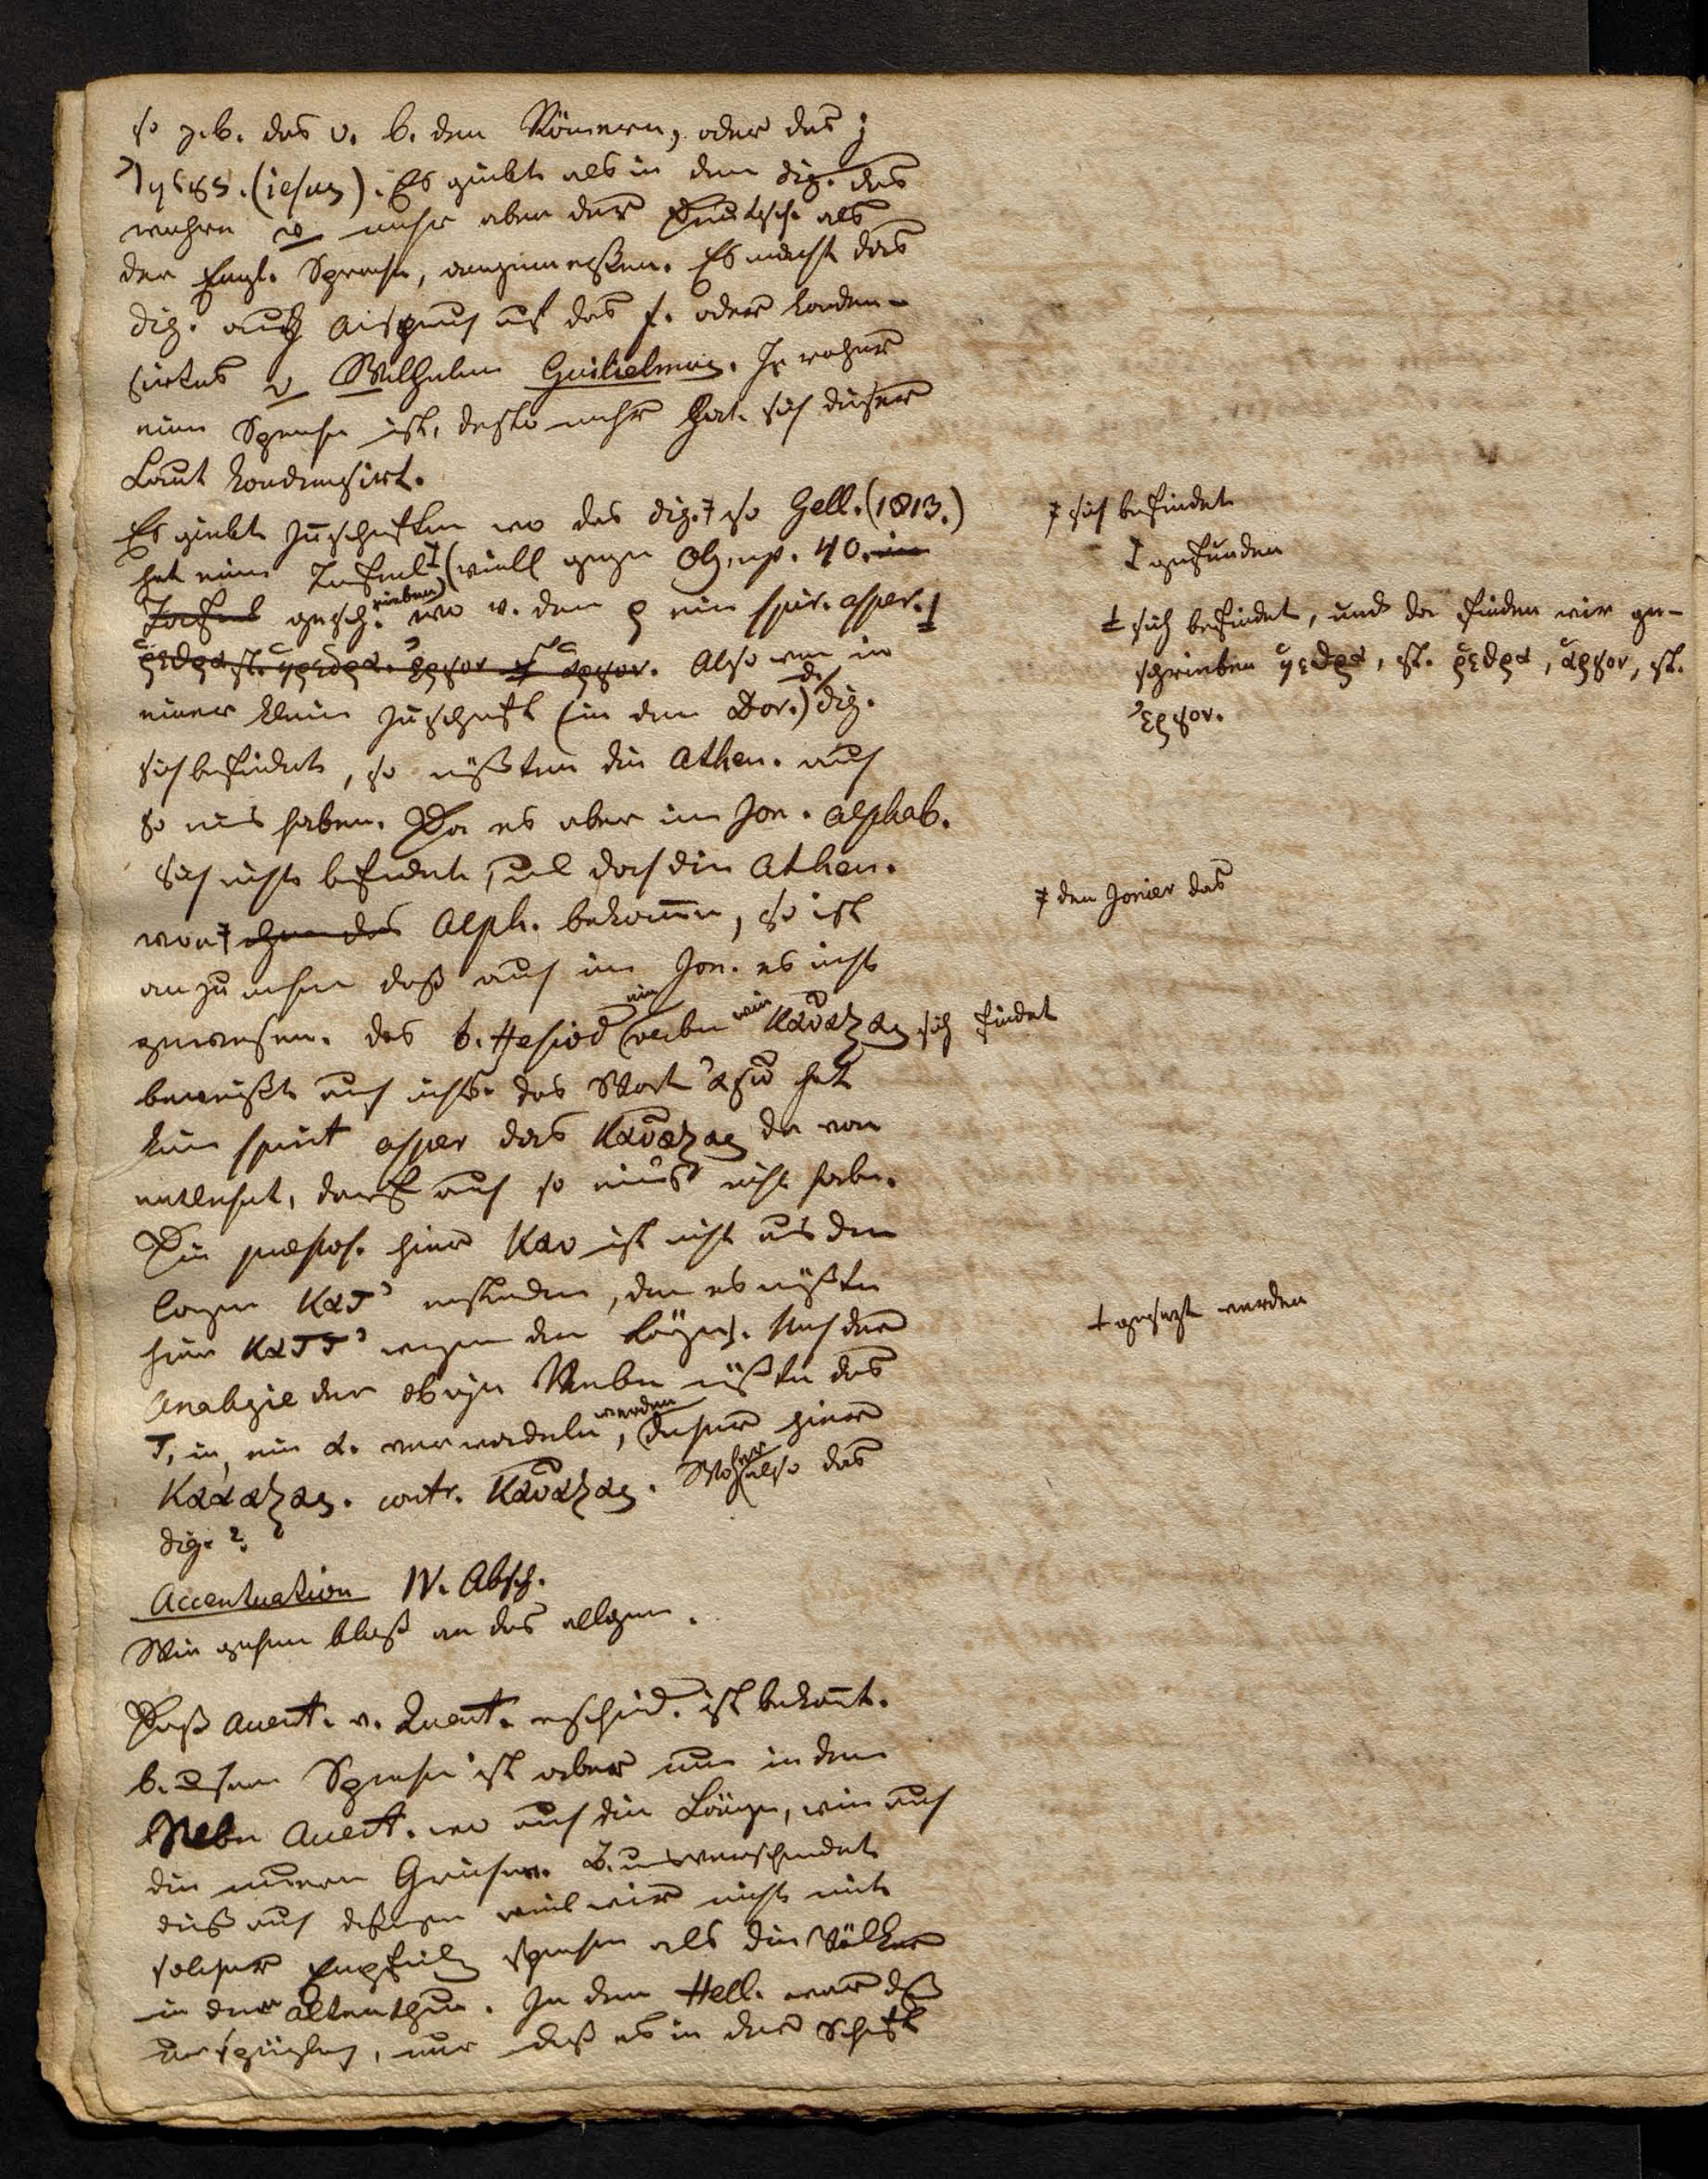 so z.b. das v. b. den Römern, oder das j
Ιησȣς. (iesus). Es giebt als in dem dig. das
wahre w mehr aber der Deutsch. als
der Engl. Sprache, anzumessen. Es macht das
dig. auch auf das f. oder konden-
sirtes v Wilhelm Guilielmus. Je roher
eine Sprache ist, desto mehr hat sich dieser
Laut kondensirt.
Es giebt Inschriften wo das dig. ⁊ so Gell. (1813.)
hat eine Tafel (viell gegen Olymp. 40. in
gesch.rieben) wo v. dem ρ ein spir. asper.
ῥεθρα st. ερȣον st αρȣον. Also wen in
einer klein Inschrift (in dem Dor.) d. dig.
sich befindet, so müßten die Athen. auch
so eins haben. Da es aber im Jon. alphab.
sich nicht befindet, und doch die Athen.
von ⁊ ihnen das Alph. bekamen, so ist
anzunehmen daß auch im Jon. es nicht
gewesen. das b. Hesiod ein verbu wie καυαξας sich findet
beweißt auch nichts. das Wort αγω hat
kein spirit asper das καυαξας da von
entlehnt, darf auch so eines nicht haben.
Die præpos. hier καυ ist nicht aus dem
langen κατ' enstanden, den es müßte
hier καττ' wegen der Länge ɬ. Nach der
Analogie der obigen Verben müßte das
τ, in ein α. verwandeln werden, daher hier
καααξας. contr. καυαξας. Woher also das
dig. ?
Accentuation IV. Absch.
Wir gehen bloß an das allgem.
Daß Accent. v. Quant. verschied. ist bekannt.
b. unsern Sprache ist aber nur in dem
Accent. wo auch die Länge, wie auch
die neuern Griechen. B. uns verschwindet
dieß auch deßwegen weil wir nicht mit
solcher Empfindg sprechen als die Völker
in dem Altenthum. In dem Hell. war dß
ursprüngleh, nur daß es in der Schrift
⁊ sich befindet
‡ gefunden
ɬ sich befindet, und da finden wir ge-
schrieben ηεθρα, st. ῥεθρα, αρȣον, st.
ερȣον.
⁊ den Jonier das
ɬ gesezt werden